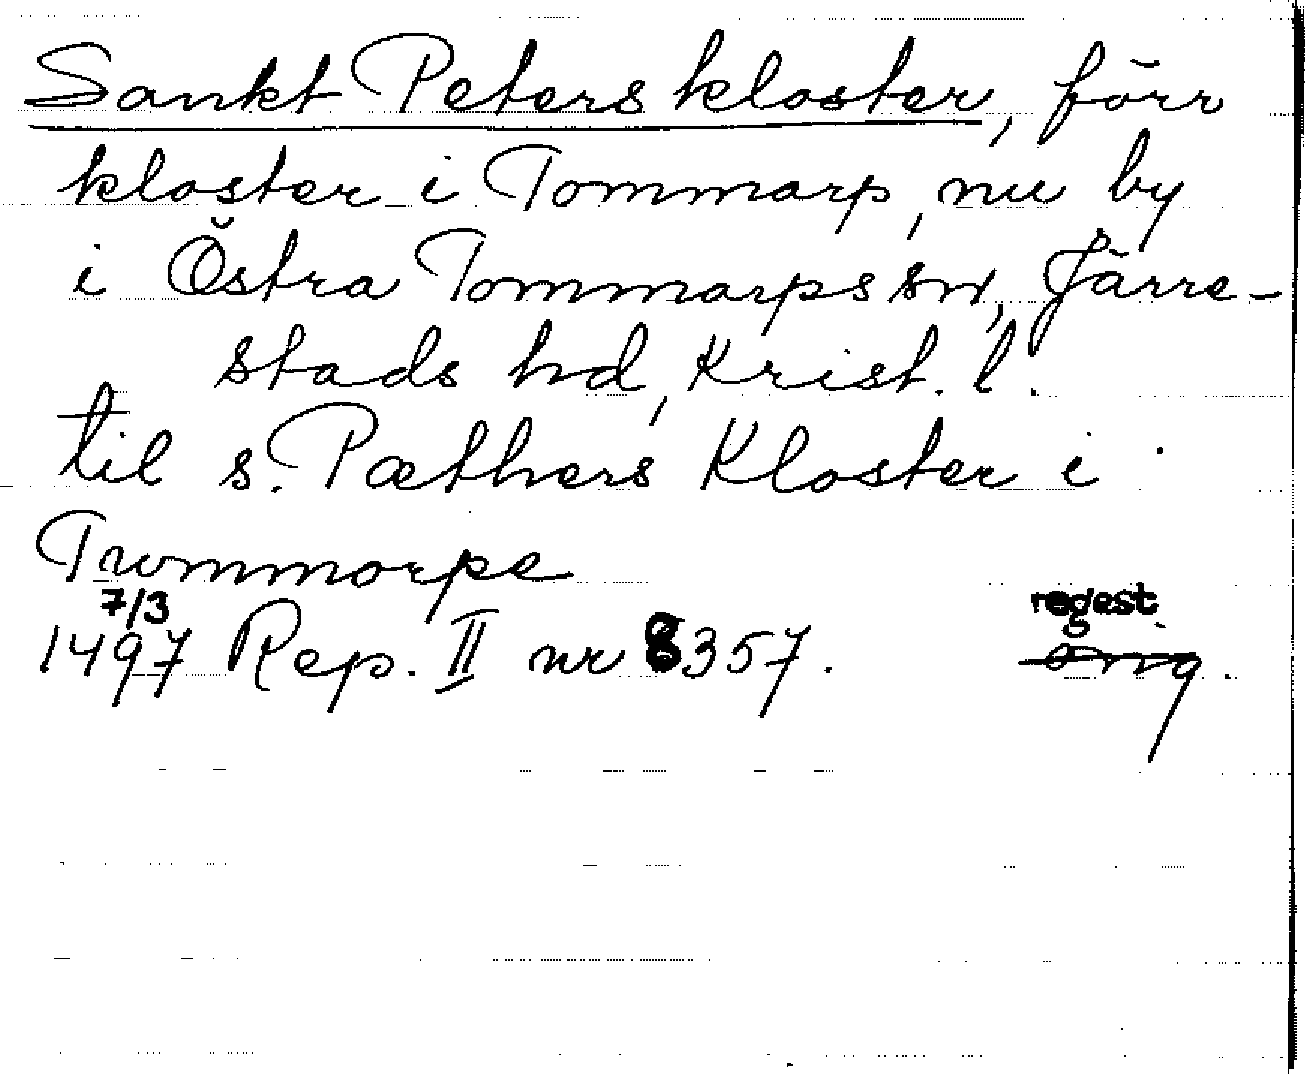 Sankt Peters kloster, förr
kloster i Tommarp, nu by
i Östra Tommarps sn, Järre-
stads hd, Krist. l.
til s. Pæthers Kloster i
Twmmorpe
7/3
1497 Rep. II nr 8357.
regest